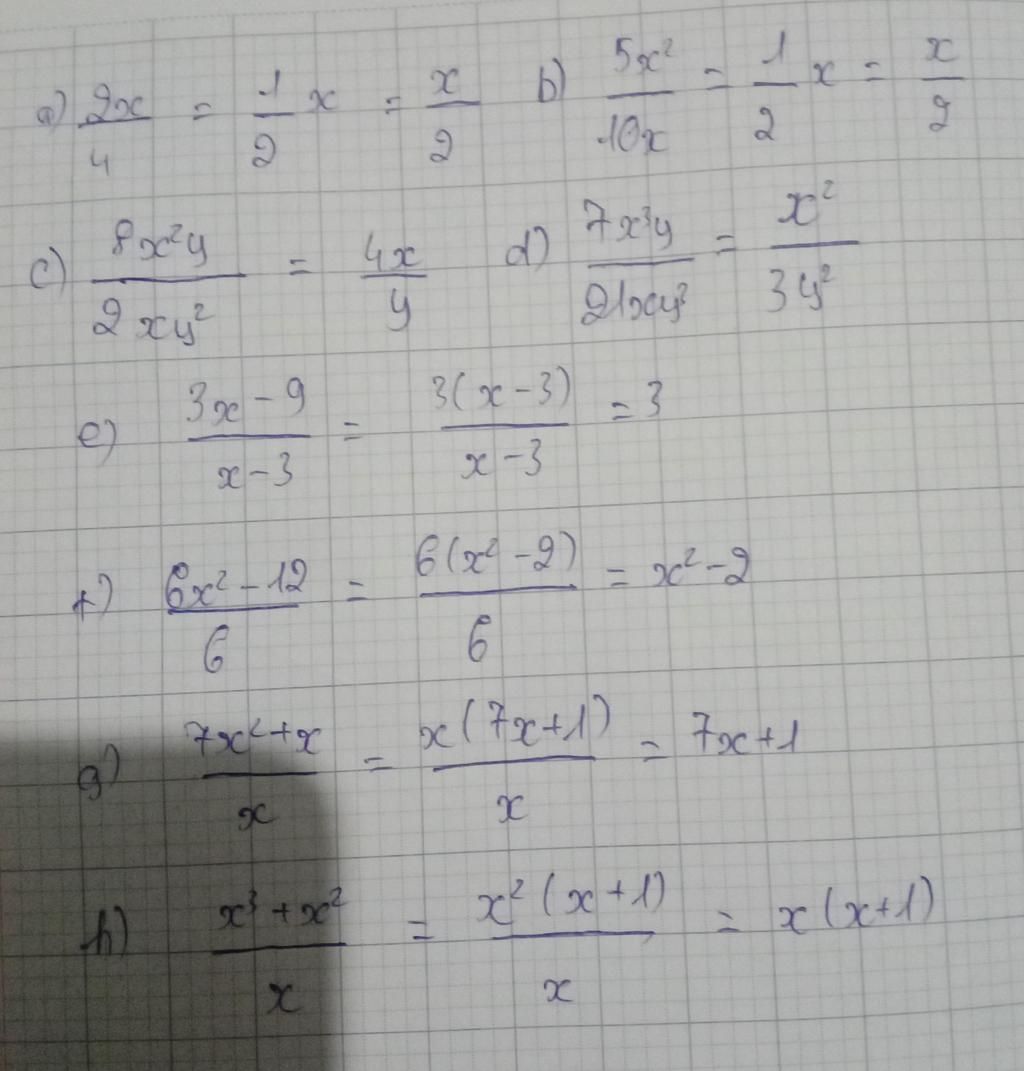 a) 2x/4 = 1/2 x = x/2 b) 5x²/10x = 1/2 x = x/2
c) 8x²y/2xy² = 4x/y d) 7x³y/21xy³ = x²/3y²
e) 3x-9/x-3 = 3(x-3)/x-3 = 3
f) 6x²-12/6 = 6(x²-2)/6 = x²-2
g) 7x²+x/x = x(7x+1)/x = 7x+1
h) x³+x²/x = x²(x+1)/x = x(x+1)